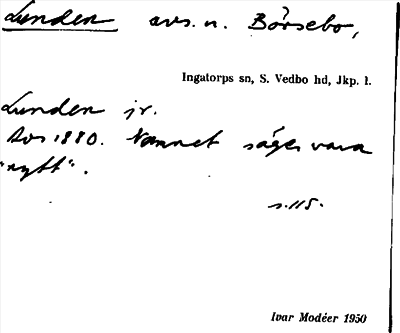 Lunden avs. u. Börsebo,
Ingatorps sn, S. Vedbo hd, Jkp. l.
Lunden jr.
Avs 1880. Namnet säges vara
"nytt".
s. 115.
Ivar Modéer 1950